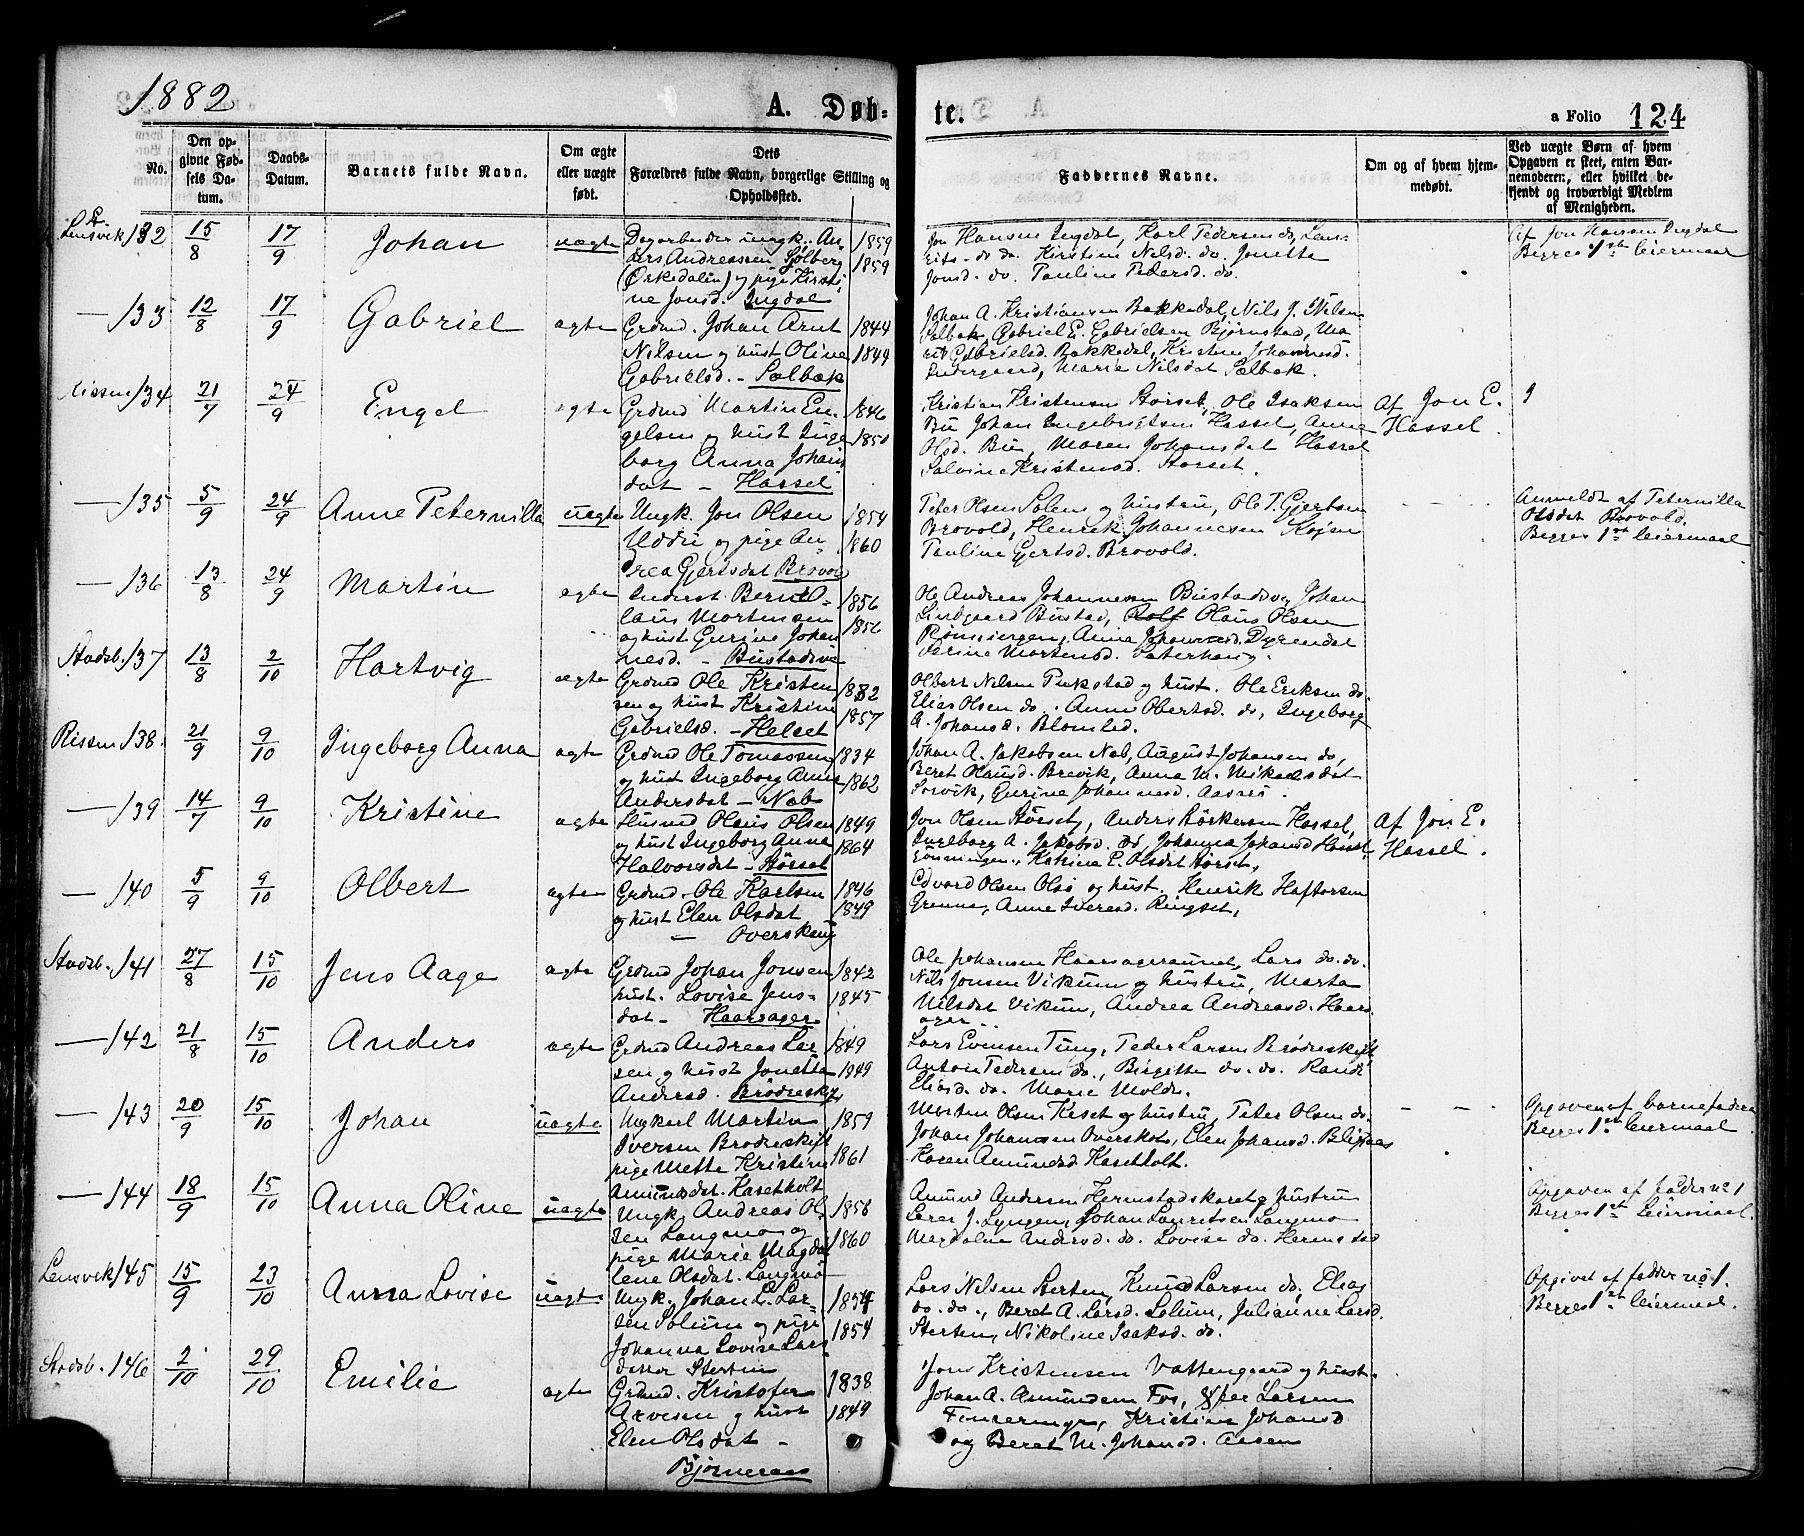 1882
A. Døb-
te.
a Folio 124
No.
Den op-
givne Fød-
sels Da-
tum.
Daabs-
Datum.
Barnets fulde Navn.
Om ægte
eller uægte
født.
Dets
Forældres fulde Navn, borgerlige Stilling og
Opholdssted.
Faddernes Navne.
Om og af hvem hjem-
medøbt.
Ved uægte Børn af hvem
Opgaven er skeet, enten Bar-
nemoderen, eller hvilket be-
kjendt og troværdigt Medlem
af Menigheden.
Lensvik 132 15/8 17/9 Johan uægte
Dagarbeider ungk. An-
ders Andreassen Solberg
(Orkedalen) og pige Kirsti-
ne Jonsd. Ingdal
1859
1859
Jon Hansen Ingdal, Karl Pedersen do, Lau-
rits do do. Kirstine Nilsd. do. Jonette
Jonsd. do. Pauline Pedersd. do.
Af Jon Hansen Ingdal
Begges 1ste leiermaal
— 133 12/8 17/9 Gabriel ægte
Grdmd. Johan Arnt
Nilsen og hust Oline
Gabrielsd. - Sælbæk
1844
1844
Johan A. Kristiansen Bakkedal, Nils J. Nilsen
Sælbæk, Gabriel E. Gabrielsen Bjørnstad, Ma-
rit Gabrielsd. Bakkedal, Kristine Johannesd.
Indergaard, Marie Nilsdat Sælbæk.
Rissen 134 21/7 24/9 Engel ægte
Grdmd Martin En-
gelsen og hust Inge
borg Anna Johans
dat - Hassel
1846
1850
Kristian Kristensen Storset, Ole Isaksen
Bu Johan Ingebrigtsen Hassel, Anne
Olsd. Bu, Maren Johansdat Hassel
Salvine Kristensd. Storset.
Af Jon E.
Hassel.
— 135 5/9 24/9 Anne Peternilla uægte
Ungk. Jon Olsen
Uddu og pige An-
drea Gjertsdat Brovold
1854
1860
Peter Olsen Solem og hustru, Ole T. Gjertsen
Brovold, Henrik Johannesen
Pauline Gjertsd. Brovold.
Anmeldt af Peternilla
Olsdat Brovold.
Begges 1ste leiermaal
— 136 13/8 24/9 Martin ægte
Inderst Bernt O-
laus Mortensen
og hust Gurine Johan
nesd. - Bustadvie
1856
1856
Ole Andreas Johannesen Bustadvig Johan
Lindgaard Bustad, Rolf Olaus Olsen
Rønningen, Anna Johannesd. Dyrendal
Serine Mortensd. Sæterhaug.
Stadsb. 137 13/8 2/10 Hartvig ægte
Grdmd Ole Kristen
sen og hust Kristine
Gabrielsd. - Helset
1882
1857
Olbert Nilsen Pukstad og hust. Ole Eriksen do.
Elias Olsen do. Anne Obertsd. do, Ingeborg
A. Johansd. Blomlid.
Rissen 138. 21/9 9/10 Ingeborg Anna ægte
Grdmd Ole Tomassen
og hust Ingeborg Anna
Andersdat - Næb
1834
1862
Johan A. Jakobsen Næb, August Johansen do,
Beret Olausd. Brevik, Anna M. Mikaelsdat
Sørvik, Gurine Johannesd. Aasses.
— 139 14/7 9/10 Kristine ægte
Husmd Olaus Olsen
og hust Ingeborg Anna
Halvorsdat - Størset
1849
1864
Jon Olsen Størset, Anders Børkersen Hassel,
Ingeborg A. Jakobsd. do, Johanna Johansd Hassel
Grønningen, Katrina E. Olsdat Størset.
Af Jon E.
Hassel.
— 140 5/9 9/10 Olbert ægte
Grdmd. Ole Karlsen
og hust Elen Olsdat
— Overskeug
1846
1849
Edvard Olsen Olsø og hust. Henrik Haftorsen
Grenne, Anne Iversd. Ringset,
Stadsb. 141 27/8 15/10 Jens Aage ægte
Grdmd Johan Jonsen
hust. Lovise Jens-
dat - Haarsager
1842
1845
Ole Johansen Haarsageraunet, Lars do. do.
Nils Jonsen Vikum og hustru, Marta
Nilsdat Vikum, Andrea Andreasd. Haars
ager..
— 142 21/8 15/10 Anders ægte
Grdmd Andreas Lar-
sen og hust Jonette
Andersd. Brødreskift
1849
1849
Lars Evensen Tung, Peder Larsen Brødreskift
Anton Pedersen do., Birgitte do. do. Randi
Eliasd. do. Marie Molde.
— 143 20/9 15/10 Johan uægte
Ungkarl Martin
Iversen Brødreskift
pige Mette Kristine
Amundsdat. Kasetholt
1859
1861
Morten Olsen Keset og hustru, Peter Olsen do.
Johan Johansen Overskot, Elen Johansd. Bligaas
Karen Amundsd Kasetholt.
Opgaven af barnefaderen
Begges 1ste leiermaal
— 144 18/9 15/10 Anna Oline uægte
Ungk. Andreas Ol-
sen Langmo og
pige Marie Magda
lene Olsdat. Langmo
1858
1860
Amund Andersen Hermstadskaret og hustru
J. Lyngen, Johan Lauritsen Langmo
Magdalene Andersd. do. Lovise do. Hermstad
Opgaven af fadder no 1
Begges 1ste leiermaal.
Lensvik 145 15/9 23/10 Anna Lovise uægte
Ungk. Johan L. Lar-
sen Solum og pige
Johanna Lovise Lars
datter Sterten
1854
1854
Lars Nilsen Sterten, Knud Larsen do. Elias
do. do., Beret A. Larsd. Solum, Julianne Larsd.
Sterten, Nikoline Isaksd. do.
Opgivet af fadder no 1.
Begges 1ste leiermaal.
Stadsb. 146 2/10 29/10 Emilie ægte
Grdmd. Kristofer
Arvesen og hust
Elen Olsdat -
Bjørneraas
1838
1849
Jon Kristensen Vattengaard og hust.
Johan A. Amundsen Fos, Peter Larsen
Kristine Johansd
og Beret M. Johansd. Aasen